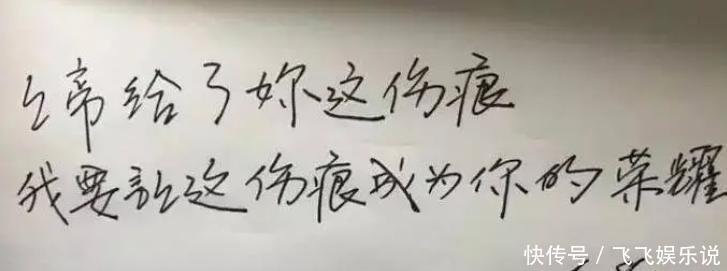 上帝给了妳这伤痕
我要让这伤痕成为你的荣耀
快传号/飞飞娱乐说